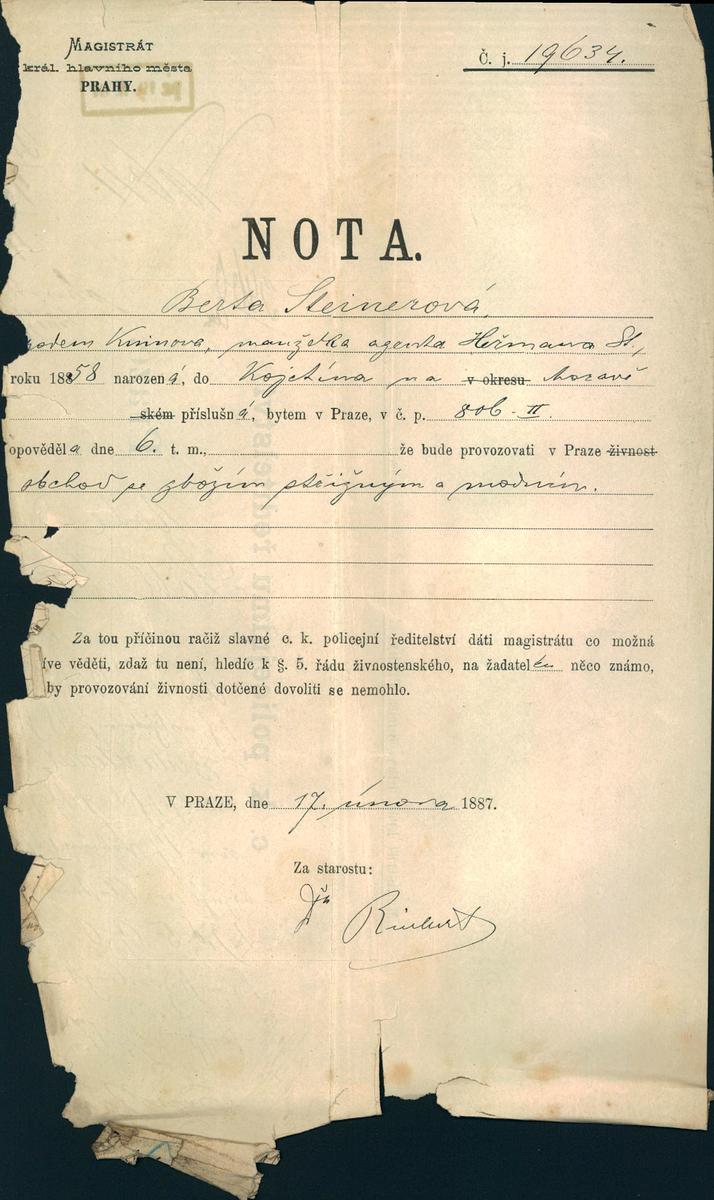 Magistrát
král. hlavního města
PRAHY.
Č. j. 19634.
NOTA.
Berta Steinerová,
rodem, manželka agenta Heřmana St.,
roku 1858 narozená, do Kojetína na v okresu Moravě
ském příslušná, bytem v Praze, v č. p. 806-II.
opověděla dne 6. t. m., že bude provozovati v Praze živnost
obchod se zbožím střižným a modním.
Za tou příčinou račiž slavné c. k. policejní ředitelství dáti magistrátu co možná
íve věděti, zdaž tu není, hledíc k §. 5. řádu živnostenského, na žadatelku něco známo,
by provozování živnosti dotčené dovoliti se nemohlo.
V PRAZE, dne 17. února 1887.
Za starostu: